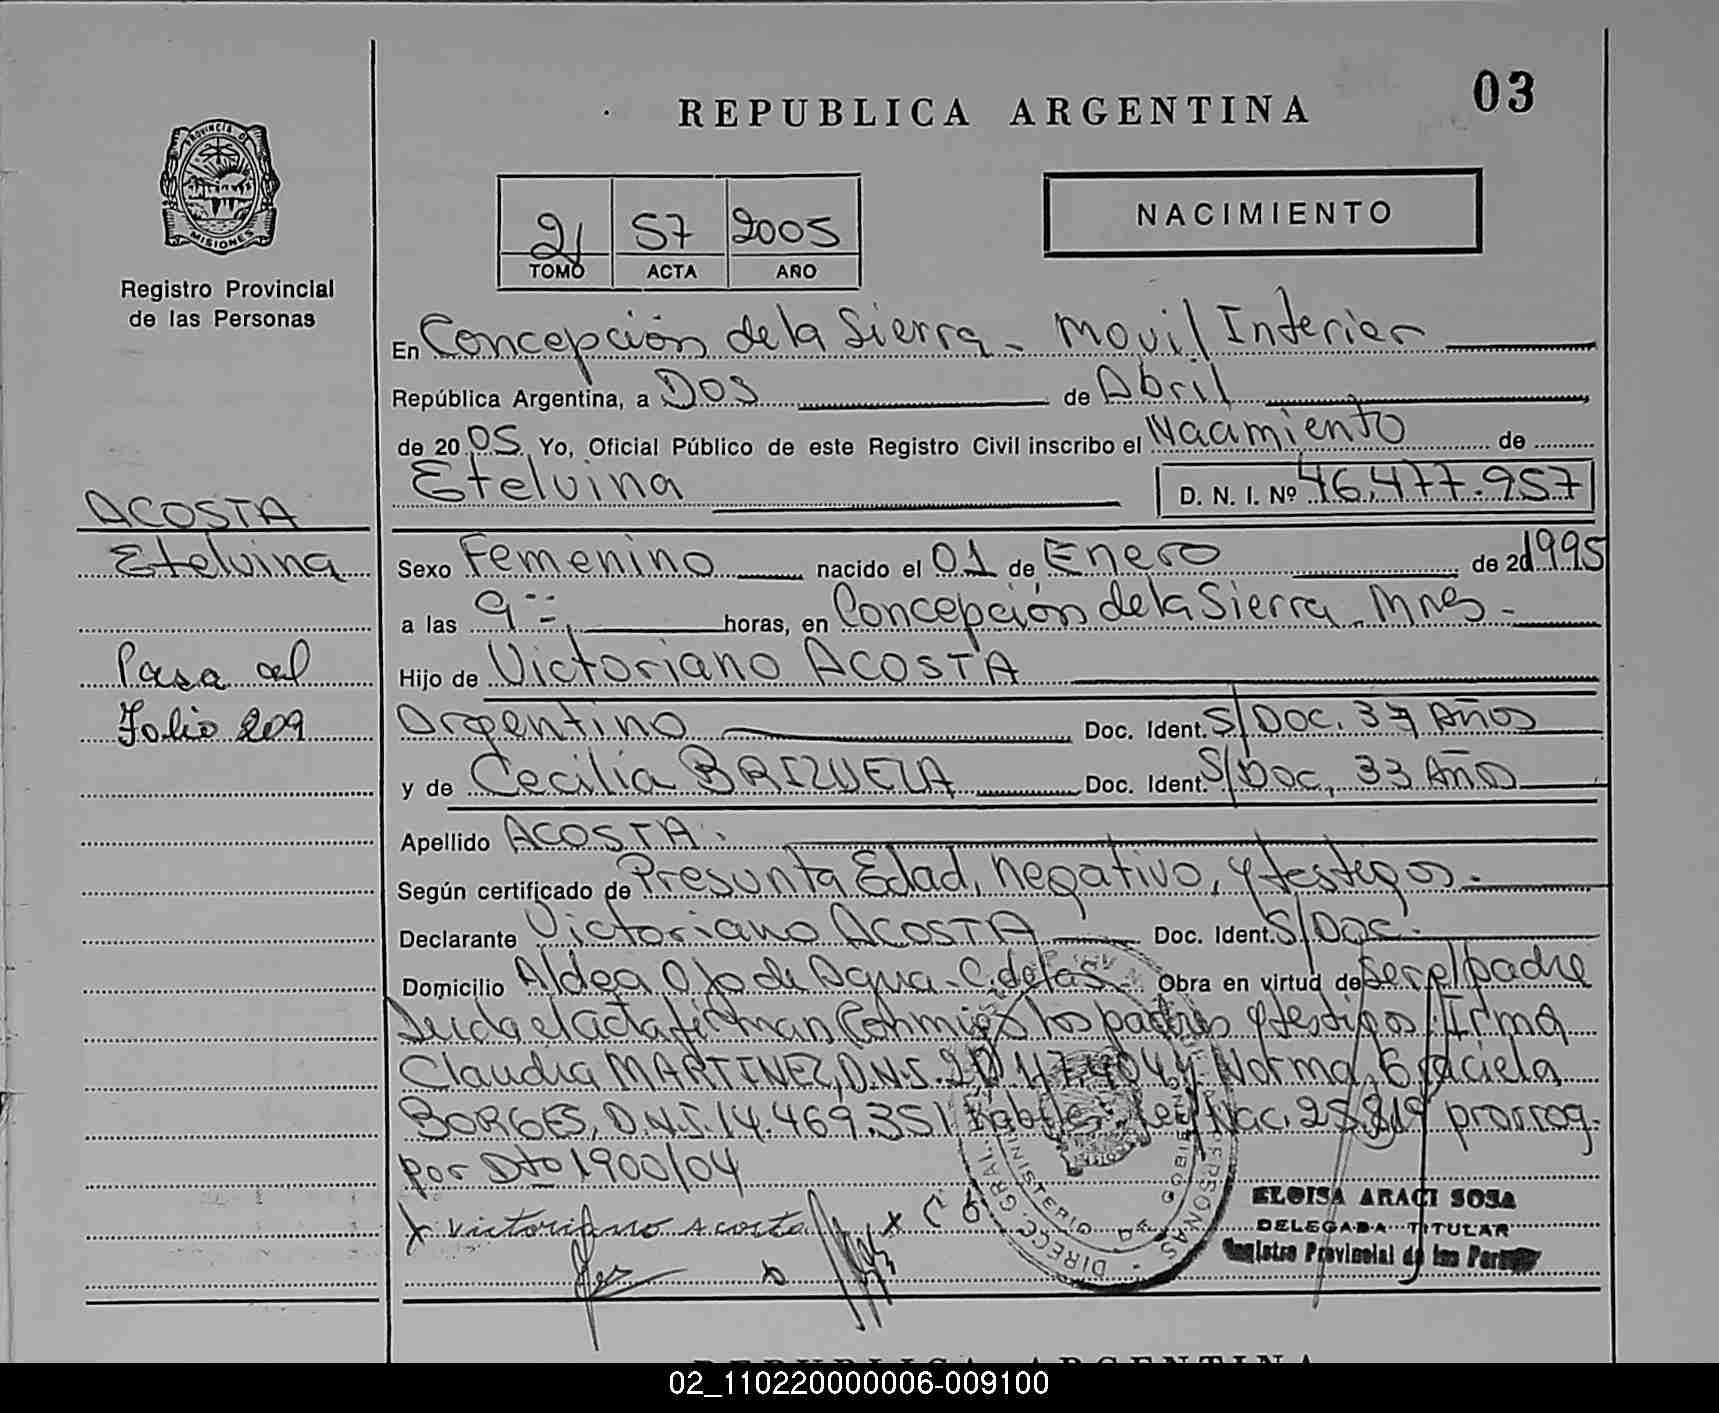 03
REPUBLICA ARGENTINA
PROVINCIA DE
MISIONES
Registro Provincial
de las Personas
2 57 2005
TOMO ACTA AÑO
NACIMIENTO
En Concepción de la Sierra - Movil Interior
República Argentina, a Dos de Abril
de 20 05. Yo, Oficial Público de este Registro Civil inscribo el Nacimiento de
Etelvina D. N. I. Nº 46.477.957
ACOSTA
Etelvina
Pasa al
Folio 209
Sexo Femenino nacido el 01 de Enero de 20 1995
a las 9 horas, en Concepción de la Sierra - Mnes -
Hijo de Victoriano ACOSTA
Argentino Doc. Ident. S/Doc. 37 Años
y de Cecilia BRIZUELA Doc. Ident. S/Doc, 33 Años
Apellido ACOSTA.
Según certificado de Presunta Edad, negativo, y testigos.-
Declarante Victoriano ACOSTA Doc. Ident. S/Doc.
Domicilio Aldea Ojo de Agua - C. de la S. Obra en virtud de ser el padre
Leida el acta firman Conmigo los padres y testigos: Irma
Claudia MARTINEZ, D.N.I. Norma Graciela
BORGES, D.N.I. 14.469.351 Ley Nac. 25.819 prorrog.
por Dto 1900/04
x victoriano acosta x C B
DIRECC. GRAL. PERSONAS
MINISTERIO DE
ELOISA ARACI SOSA
DELEGADA TITULAR
Registro Provincial de las Personas
REPUBLICA ARGENTINA
02_110220000006-009100